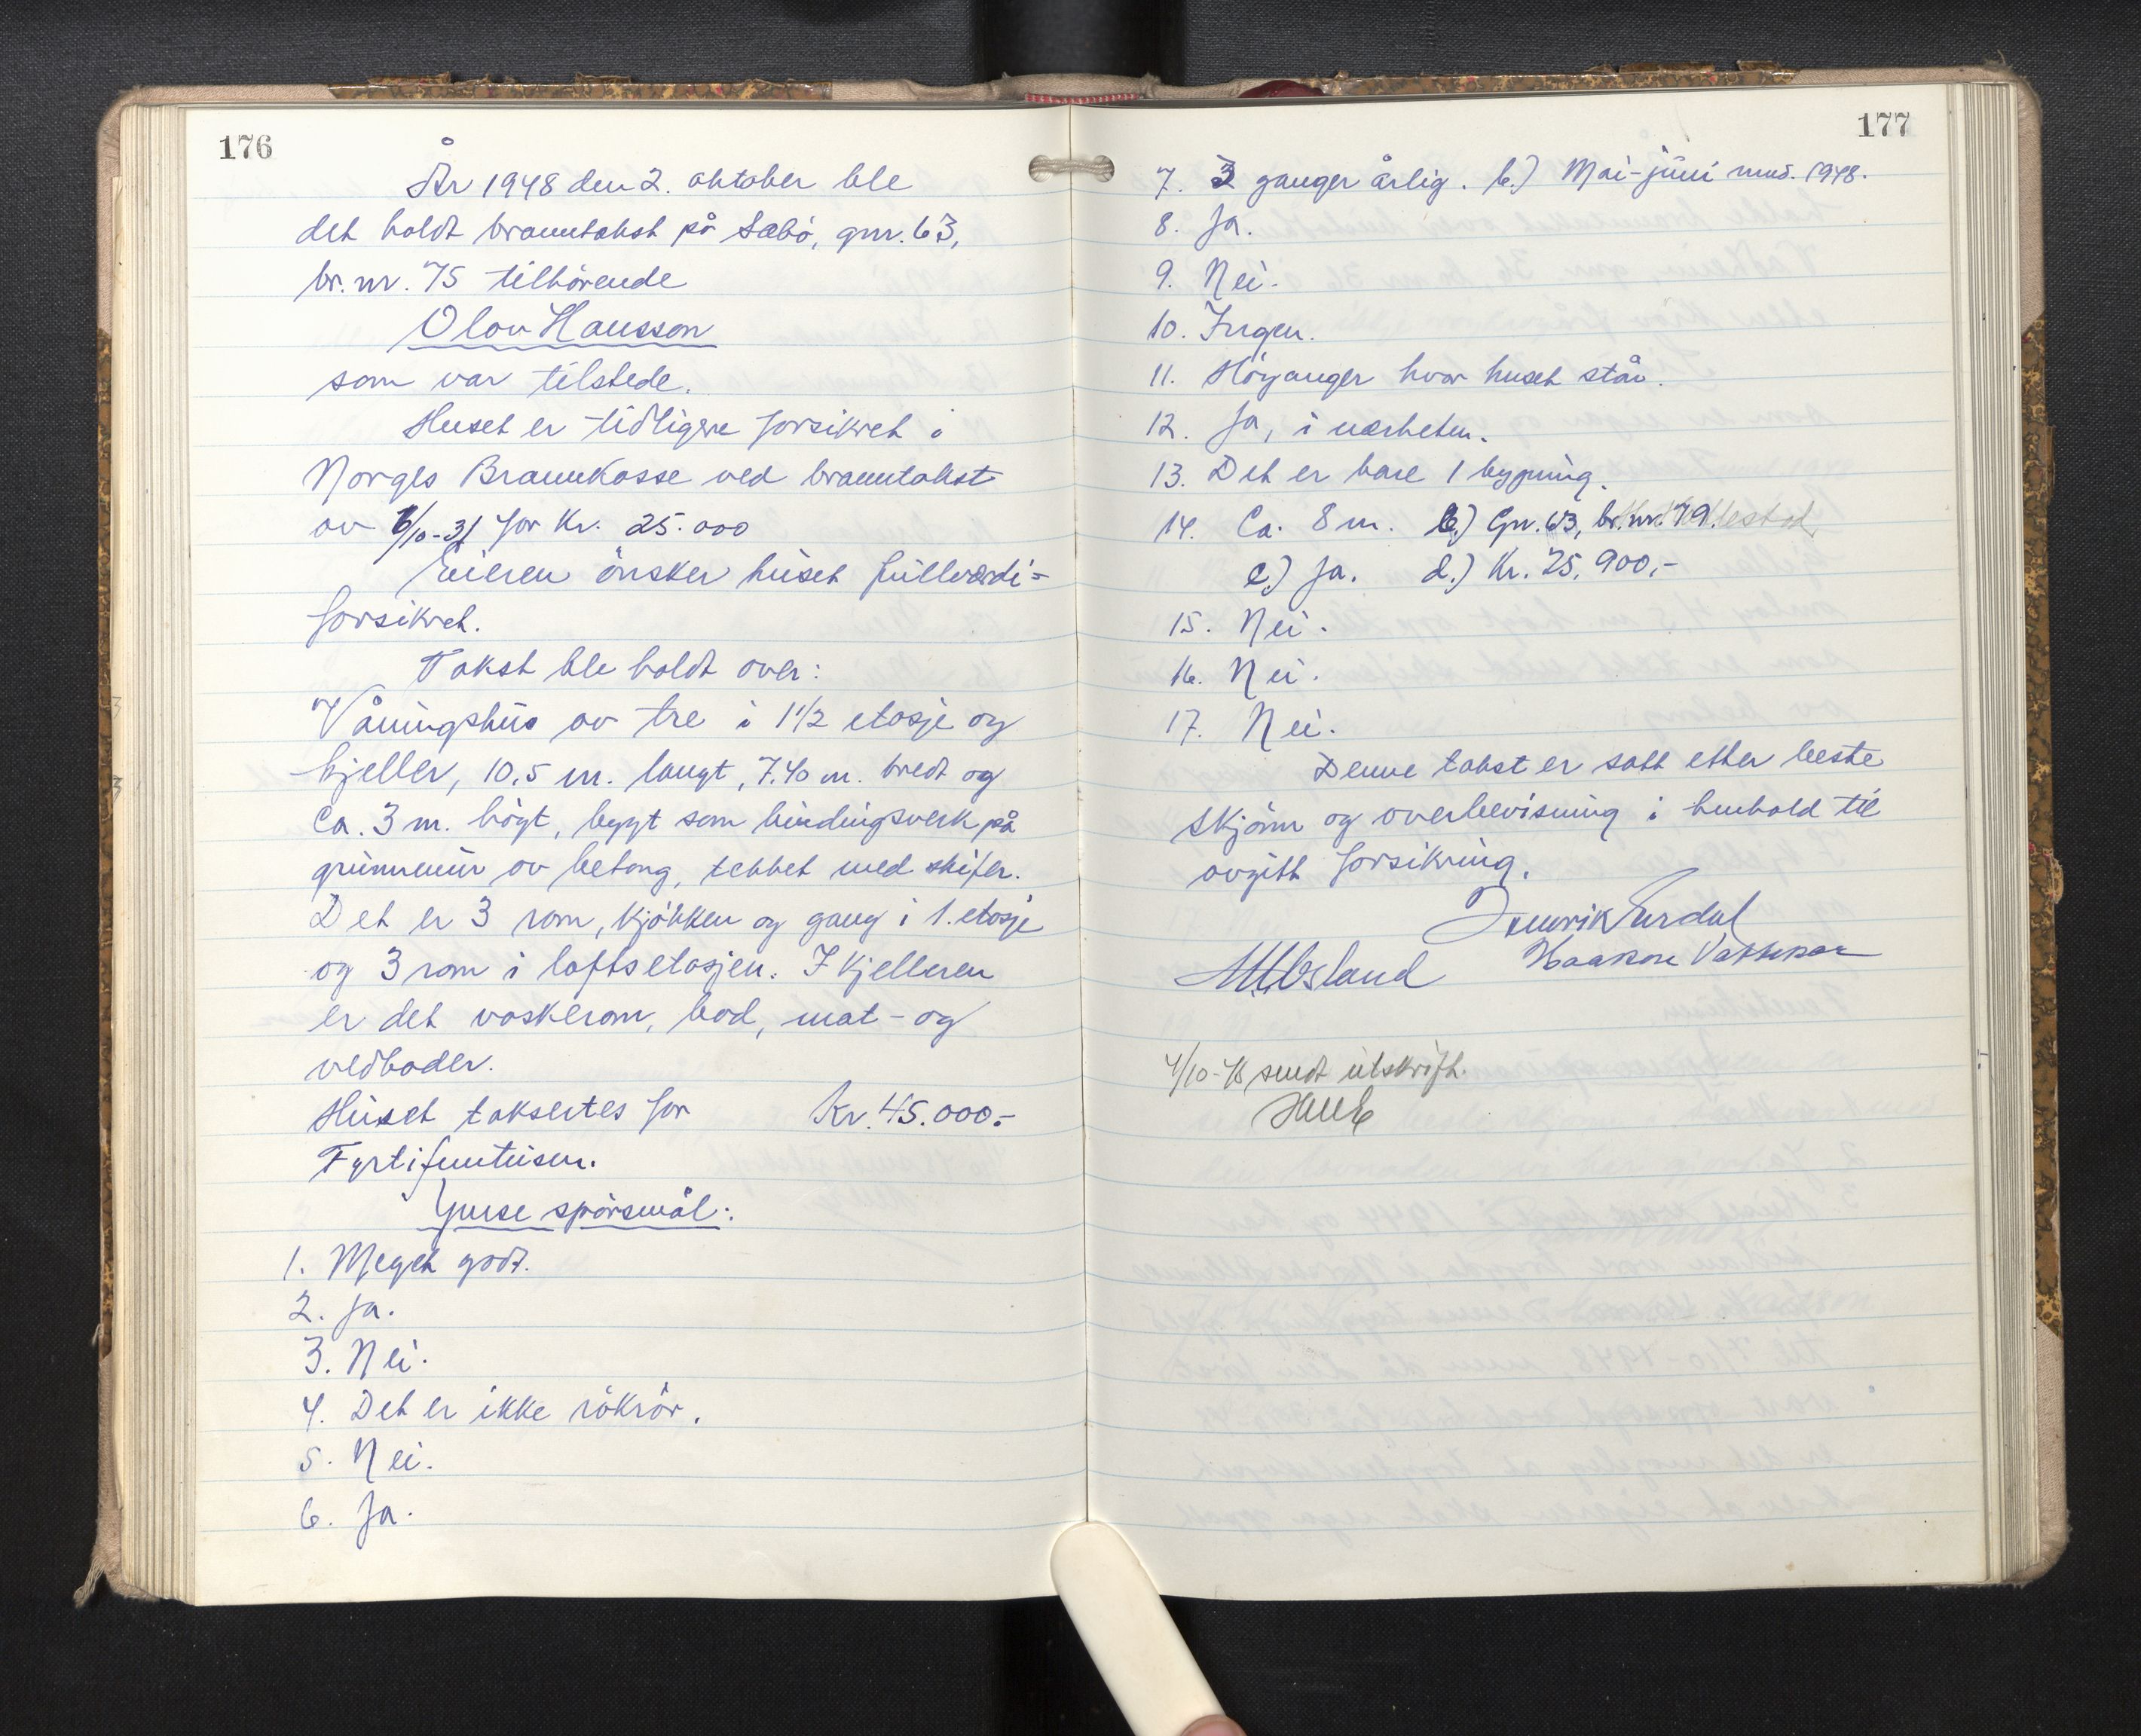 176
År 1948 den 2. oktober ble
det holdt branntakst på Sæbø, gnr. 63,
br. nr. 75 tilhörende
Olav Hansson
som var tilstede.
Huset er tidligere forsikret i
Norges Brannkasse ved branntakst
av 6/10-31 for Kr. 25.000
Eieren önsker huset fullverdi=
forsikret.
Takst ble holdt over:
Våningshus av tre i 1 1/2 etasje og
kjeller, 10,5 m. langt, 7.40 m. bredt og
Ca. 3 m. högt, bygt som bindingsverk på
grunnmur av betong, tekket med skifer.
Det er 3 rom, kjökken og gang i 1. etasje
og 3 rom i loftsetasjen. I kjelleren
er det vaskerom, bod, mat- og
vedboder.
Huset taksertes for Kr. 45.000.-
Fyrtifemtusen.
Ymse spörsmål:
1. Meget godt.
2. Ja.
3. Nei.
4. Det er ikke rökrör.
5. Nei.
6. Ja.
177
7. 3 ganger årlig. b.) Mai-juni mnd. 1948.
8. Ja.
9. Nei.
10. Ingen.
11. Höyanger hvor huset står.
12. Ja, i nærheten.
13. Det er bare 1 bygning.
14. Ca. 8 m. b.) Gnr. 63, br. nr. 79.
c.) Ja. d.) Kr. 25.900,-
15. Nei.
16. Nei.
17. Nei.
Denne takst er satt etter beste
skjönn og overbevisning i henhold til
avgitt forsikring.
Henrik
Haakon
4/10-48 sendt utskrift.